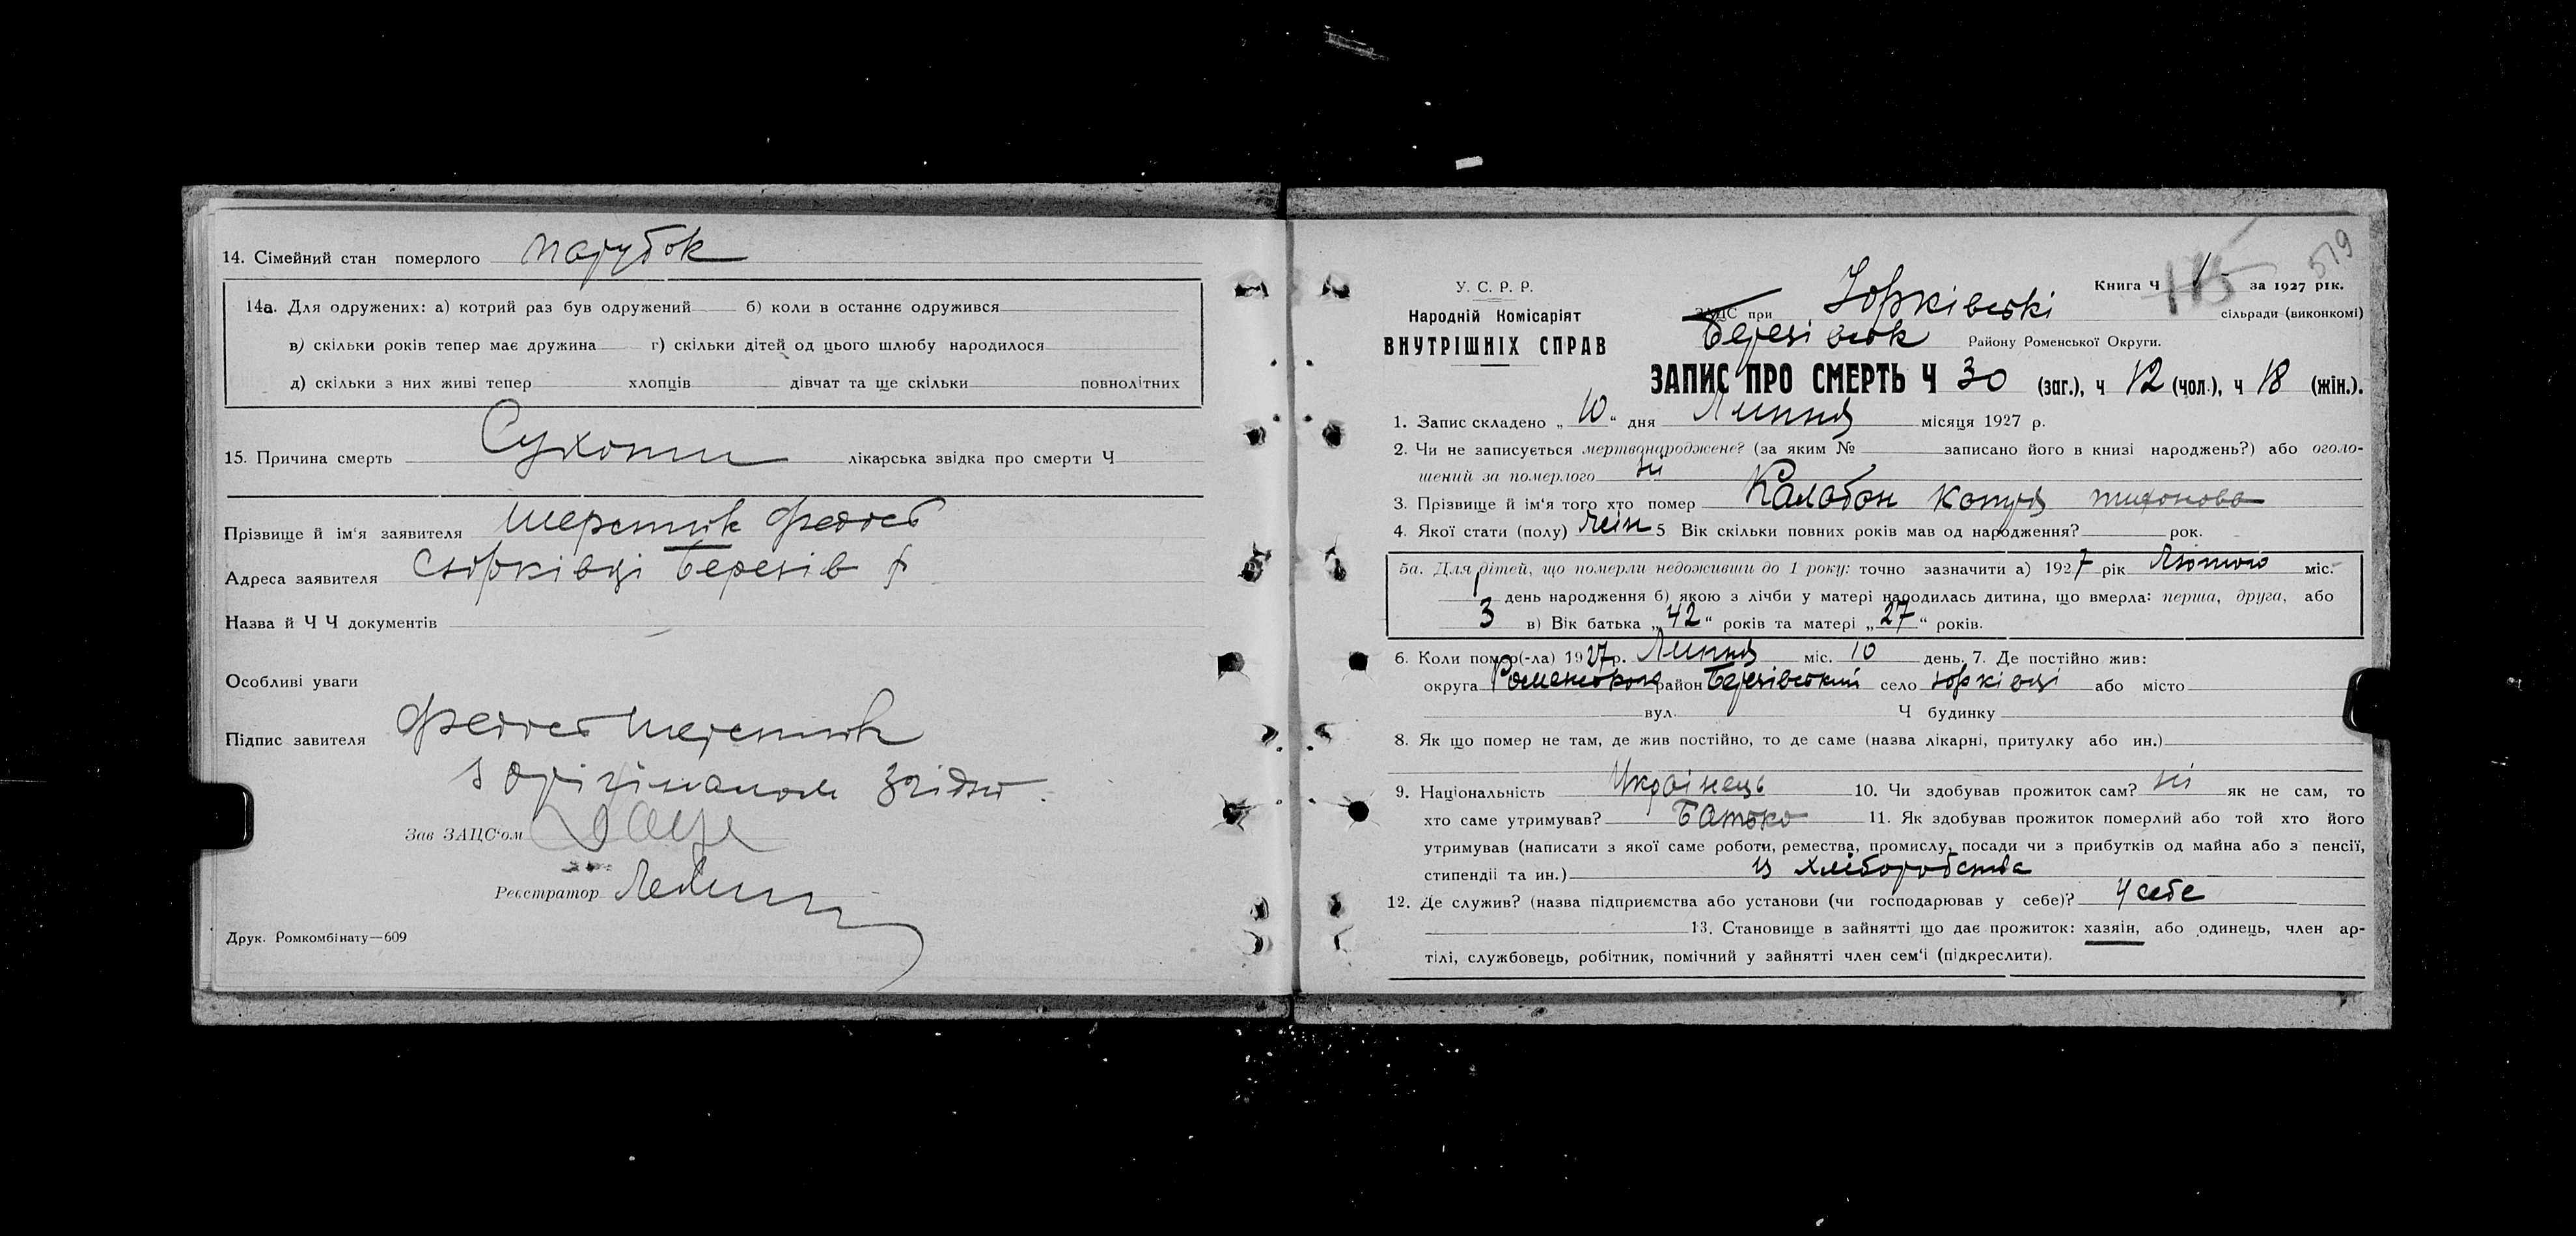 14. Сімейний стан померлого парубок
14а. Для одружених: а) котрий раз був одружений б) коли в останнє одружився
в) скільки років тепер має дружина г) скільки дітей од цього шлюбу народилося
д) скільки з них живі тепер хлопців дівчат та ще скільки повнолітних
15. Причина смерть Сухоти лікарська звідка про смерти Ч
Прізвище й ім'я заявителя Шерстюк Федось
Адреса заявителя с юрківці Березів р
Назва й Ч Ч документів
Особливі уваги
Підпис завителя Федось Шерстюк
з орігіналом згідно.
Зав ЗАЦС'ом
Реєстратор
Друк. Ромкомбінату—609
519
У. С. Р. Р.
Народній Комісаріят
ВНУТРІШНІХ СПРАВ
Книга Ч 1 за 1927 рік.
ЗАЦС при Юрківські сільради (виконкомі)
Березівськ Району Роменської Округи.
ЗАПИС ПРО СМЕРТЬ Ч 30 (заг.), ч 12 (чол.), ч 18 (жін.).
1. Запис складено „10" дня Липня місяця 1927 р.
2. Чи не записується мертвонароджене? (за яким № записано його в книзі народжень?) або оголо-
шений за померлого ні
3. Прізвище й ім'я того хто помер Калабан
4. Якої стати (полу) 5 Вік скільки повних років мав од народження? рок.
5а. Для дітей, що померли недоживши до 1 року: точно зазначити а) 1927 рік Лютого міс.
день народження б) якою з лічби у матері народилась дитина, що вмерла: перша, друга, або
3 в) Вік батька „42" років та матері „27" років.
6. Коли помер(-ла) 1927р. Липня міс. 10 день. 7. Де постійно жив:
округа Роменська район Березівський село юрківці або місто
вул. Ч будинку
8. Як що помер не там, де жив постійно, то де саме (назва лікарні, притулку або ин.)
9. Національність Українець 10. Чи здобував прожиток сам? ні як не сам, то
хто саме утримував? Батько 11. Як здобував прожиток померлий або той хто його
утримував (написати з якої саме роботи, ремества, промислу, посади чи з прибутків од майна або з пенсії,
стипендії та ин.) із хліборобства
12. Де служив? (назва підприємства або установи (чи господарював у себе)? У себе
13. Становище в зайнятті що дає прожиток: хазяін, або одинець, член ар-
тілі, службовець, робітник, помічний у зайнятті член сем'ї (підкреслити).